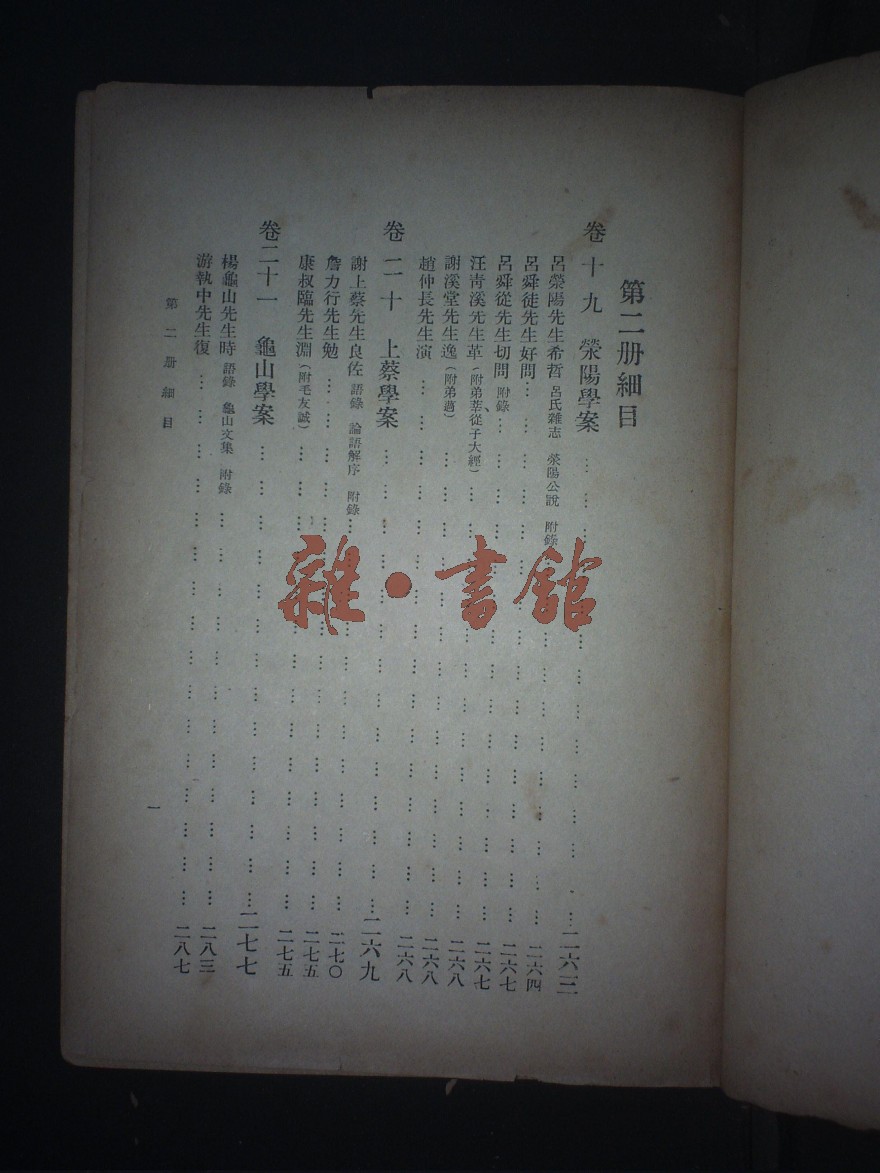 第二册細目
卷十九 滎陽學案 … … … … … … … … … … … 二六三
呂滎陽先生希哲 呂氏雜志 滎陽公說 附錄 … … … … … … … 二六四
呂舜徒先生好問 … … … … … … … … … … … … … … 二六七
呂舜從先生切問 附錄 … … … … … … … … … … … … … 二六七
汪青溪先生革(附弟莘、從子大經) … … … … … … … … … … … 二六八
謝溪堂先生逸(附弟薖) … … … … … … … … … … … … … 二六八
趙仲長先生演 … … … … … … … … … … … … … … 二六八
卷二十 上蔡學案 … … … … … … … … … … … … 二六九
謝上蔡先生良佐 語錄 論語解序 附錄 … … … … … … … … … 二七〇
詹力行先生勉 … … … … … … … … … … … … … … 二七五
康叔臨先生淵(附毛友誠) … … … … … … … … … … … … 二七五
卷二十一 龜山學案 … … … … … … … … … … … … 二七七
楊龜山先生時 語錄 龜山文集 附錄 … … … … … … … … … … 二八三
游執中先生復 … … … … … … … … … … … … … … 二八七
第二册細目
一
雜·書館